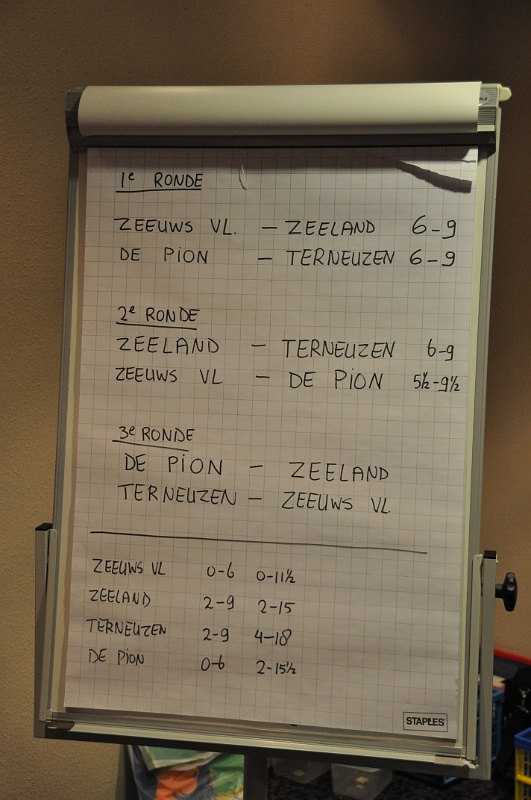 1e RONDE
ZEEUWS VL. - ZEELAND 6-9
DE PION - TERNEUZEN 6-9
2e RONDE
ZEELAND - TERNEUZEN 6-9
ZEEUWS VL - DE PION 5½-9½
3e RONDE
DE PION - ZEELAND
TERNEUZEN - ZEEUWS VL
ZEEUWS VL 0-6 0-11½
ZEELAND 2-9 2-15
TERNEUZEN 2-9 4-18
DE PION 0-6 2-15½
STAPLES